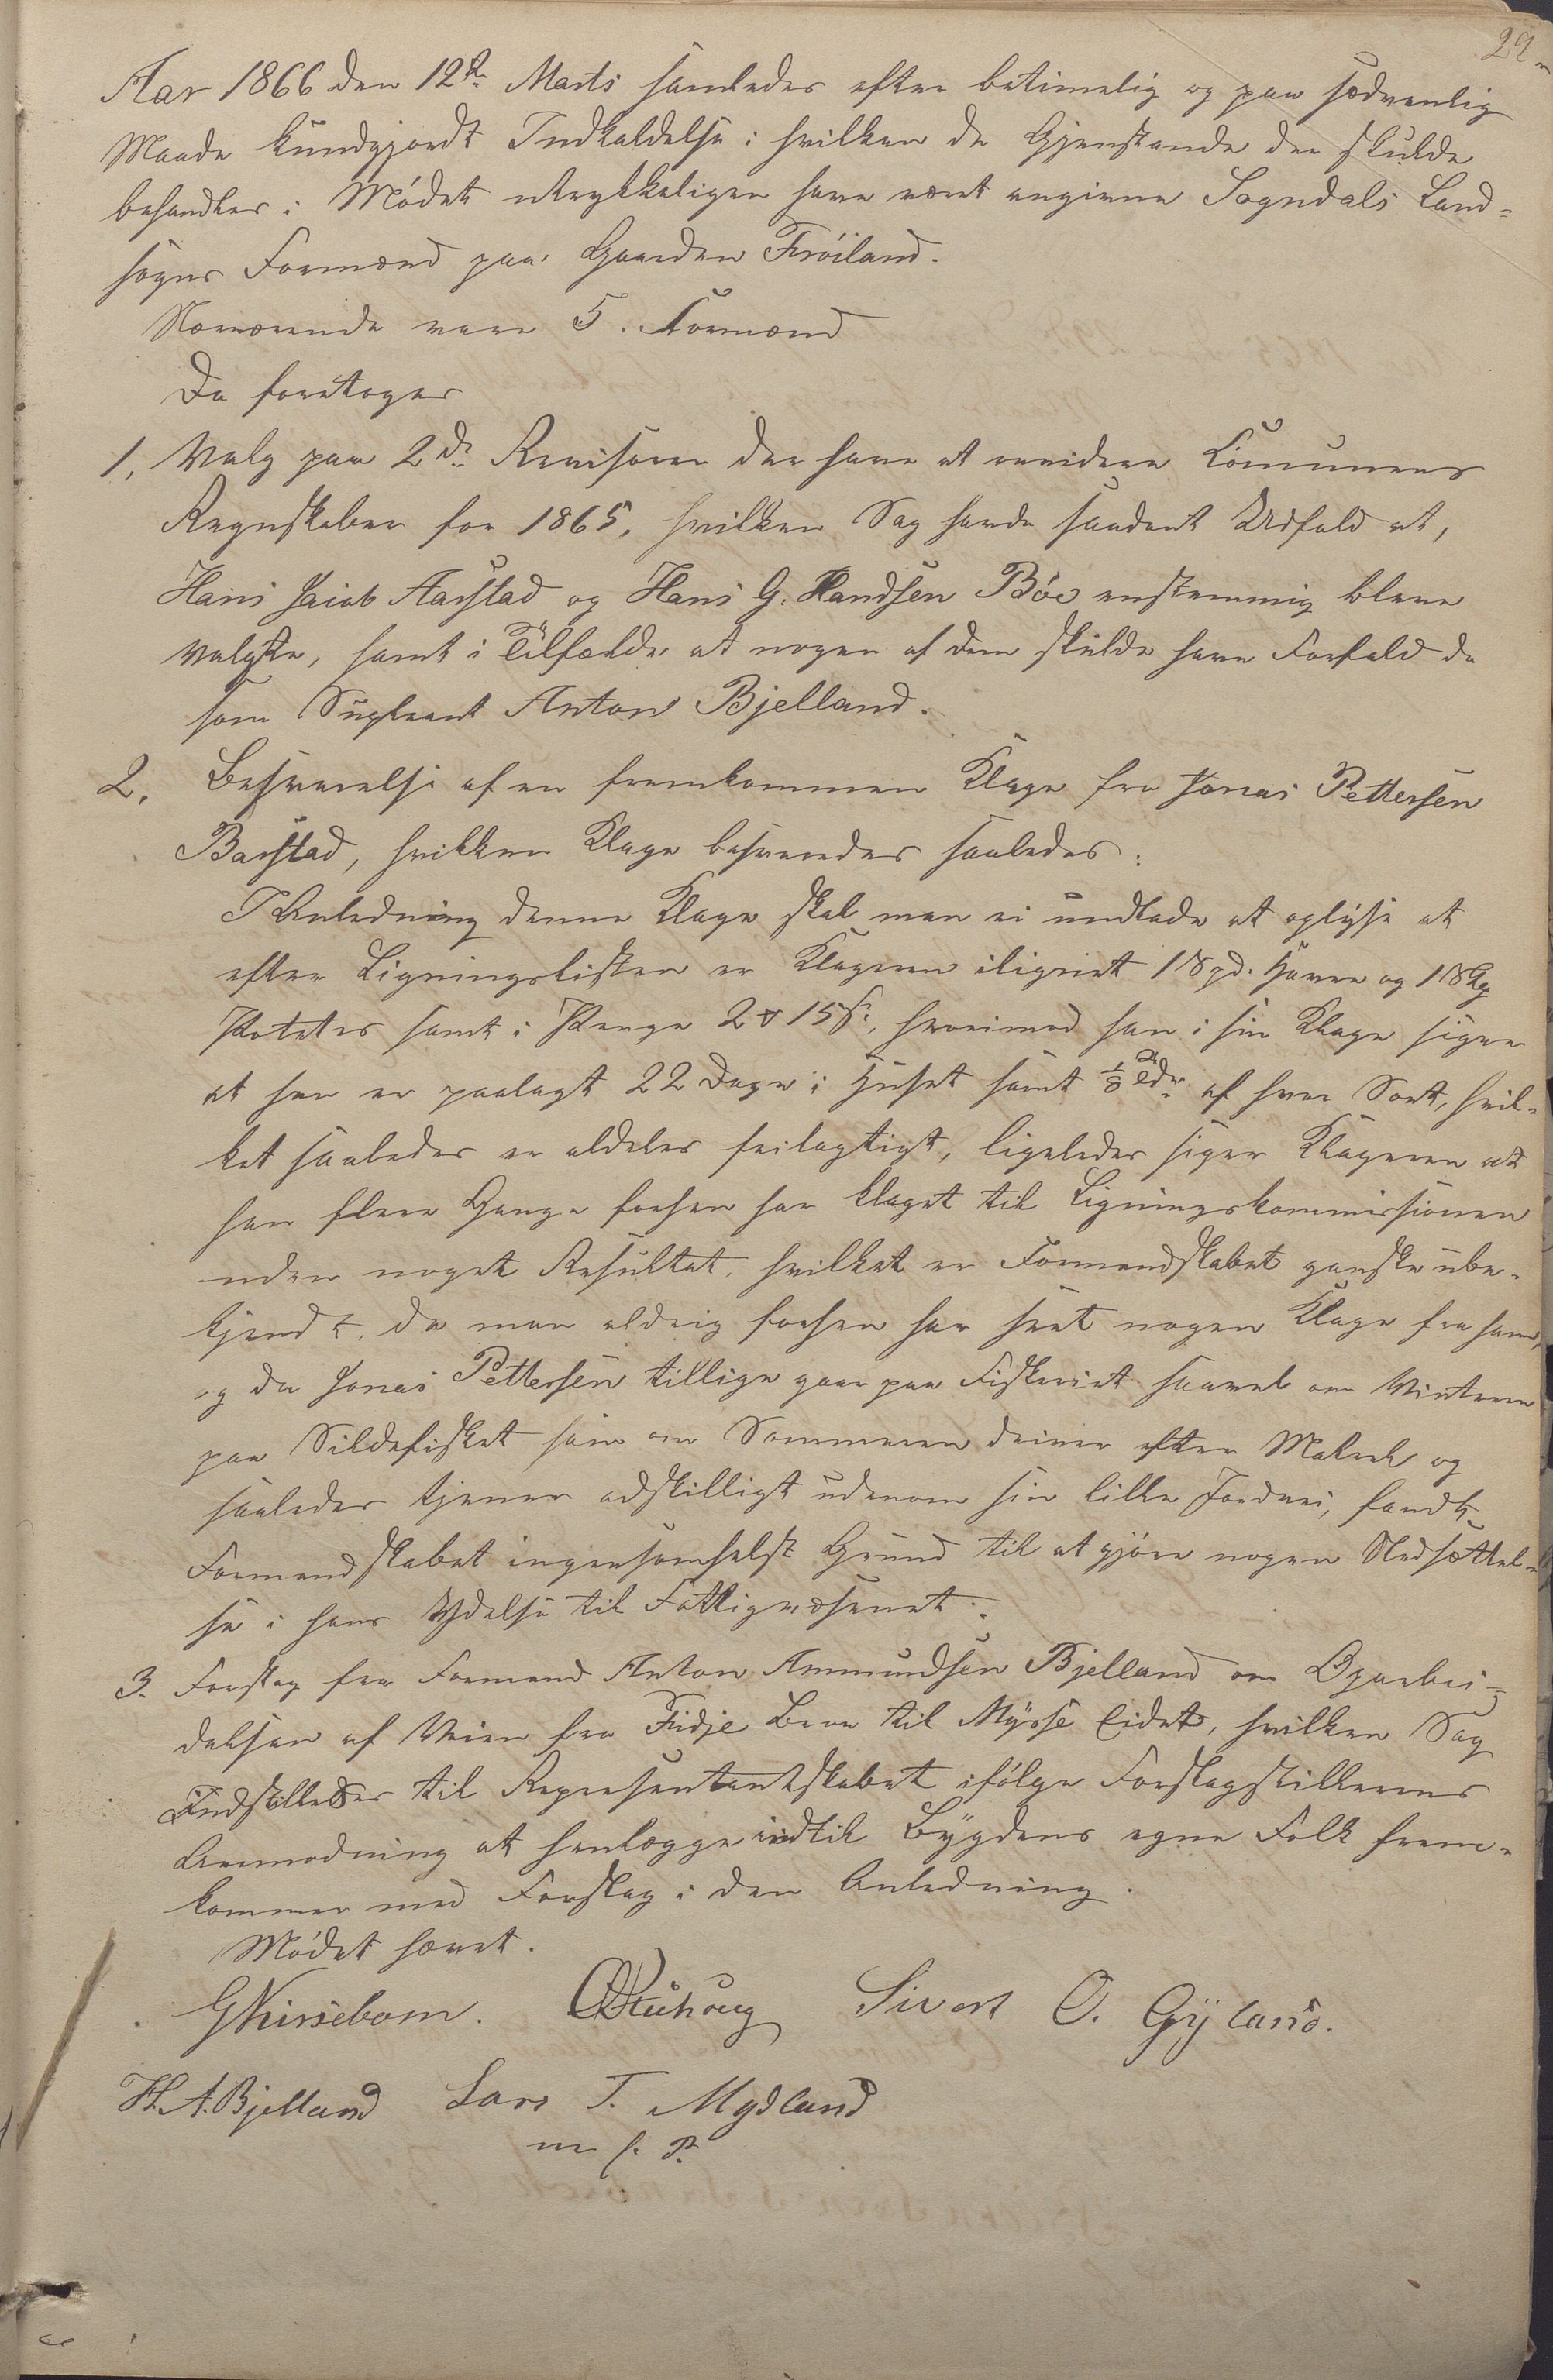 29
Aar 1866 den 12te Marts samledes efter betimelig og paa sædvanlig
Maade kundgjordt Indkaldelse i hvilken de Gjenstande der skulde
behandles i Mødet udtrykkeligen have været angivne Sogndals Land-
sogns Formænd paa Gaarden Frøiland.
Nærværende vare 5. Formænd
Da foretoges
1, Valg paa 2de Revisorer der have at revidere Comunens
Regnskaber for 1865, hvilken Sag havde saadant Udfald at,
Hans Jacob Aarstad og Hans G. Randsen Bøe enstemmig bleve
valgte, samt i Tilfælde at nogen af dem skulde have Forfald da
som Supleant Anton Bjelland.
2, Besvarelse af en fremkommen Klage fra Jonas Pettersen
Barstad, hvilken Klage besvaredes saaledes:
I Anledning denne Klage skal man ei undlade at oplyse at
efter Ligningslisten er Klageren ilignet 1 Bpd. Havre og 1
Potetes samt i Penge 2 15 s, hvorimod han i sin Klage siger
at han er paalagt 22 Dage i Huset samt 1/8 af hver Sort, hvil-
ket saaledes er aldeles feilagtigt, ligeledes siger Klageren at
han flere Gange forhen har klaget til Ligningskommissionen
uden noget Resultat, hvilket er Formandskabet ganske ube-
kjendt, da man aldrig forhen har seet nogen Klage fra ham,
og da Jonas Pettersen tillige gaar paa Fiskeriet saavel om Vinteren
paa Sildefisket som om Sommeren driver efter Makrel og
saaledes tjener adskilligt udenom sin lille Jordvei, fandt
Formandskabet ingensomhelst Grund til at gjøre nogen Nedsættel-
se i hans Ydelse til Fattigvæsenet.
3. Forslag fra Formand Anton Ammundsen Bjelland om Oparbei-
delsen af Veien fra Fidje Broe til Mysse Eidet, hvilken Sag
Indstilledes til Representantskabet ifølge Forslagstillerens
Anmodning at henlægge indtil Bygdens egne Folk frem-
kommer med Forslag i den Anledning.
Mødet hævet.
GKirsebom. Sivert O. Gyland.
H. A. Bjelland Lars T. Mydland
m. f. P.